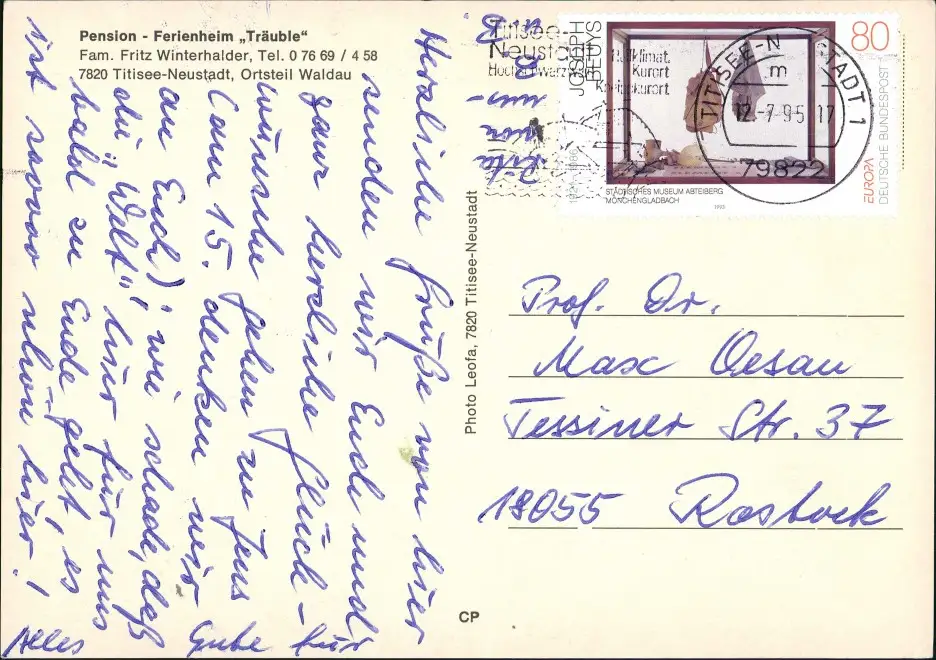 Pension - Ferienheim „Träuble“
Fam. Fritz Winterhalder, Tel. 0 76 69 / 4 58
7820 Titisee-Neustadt, Ortsteil Waldau
Herzliche Grüße von hier
senden wir Euch und
ganz herzliche Glück-
wünsche gehen zu Jens
(am 15. denken wir
an Euch) wie schade, daß
die "Welt" hier für uns
bald zu Ende geht, es
ist soooo schön hier!
Alles Gute für
Photo Leofa, 7820 Titisee-Neustadt
CP
Titisee-
Neustadt
Hochschwarzwald
Heilklimat.
Kurort
Kneippkurort
JOSEPH
BEUYS
80
EUROPA
DEUTSCHE BUNDESPOST
STÄDTISCHES MUSEUM ABTEIBERG
MÖNCHENGLADBACH
TITISEE-NEUSTADT 1
m
12.-7.95 17
79822
Prof. Dr.
Max Oesau
Tessiner Str. 37
18055 Rostock